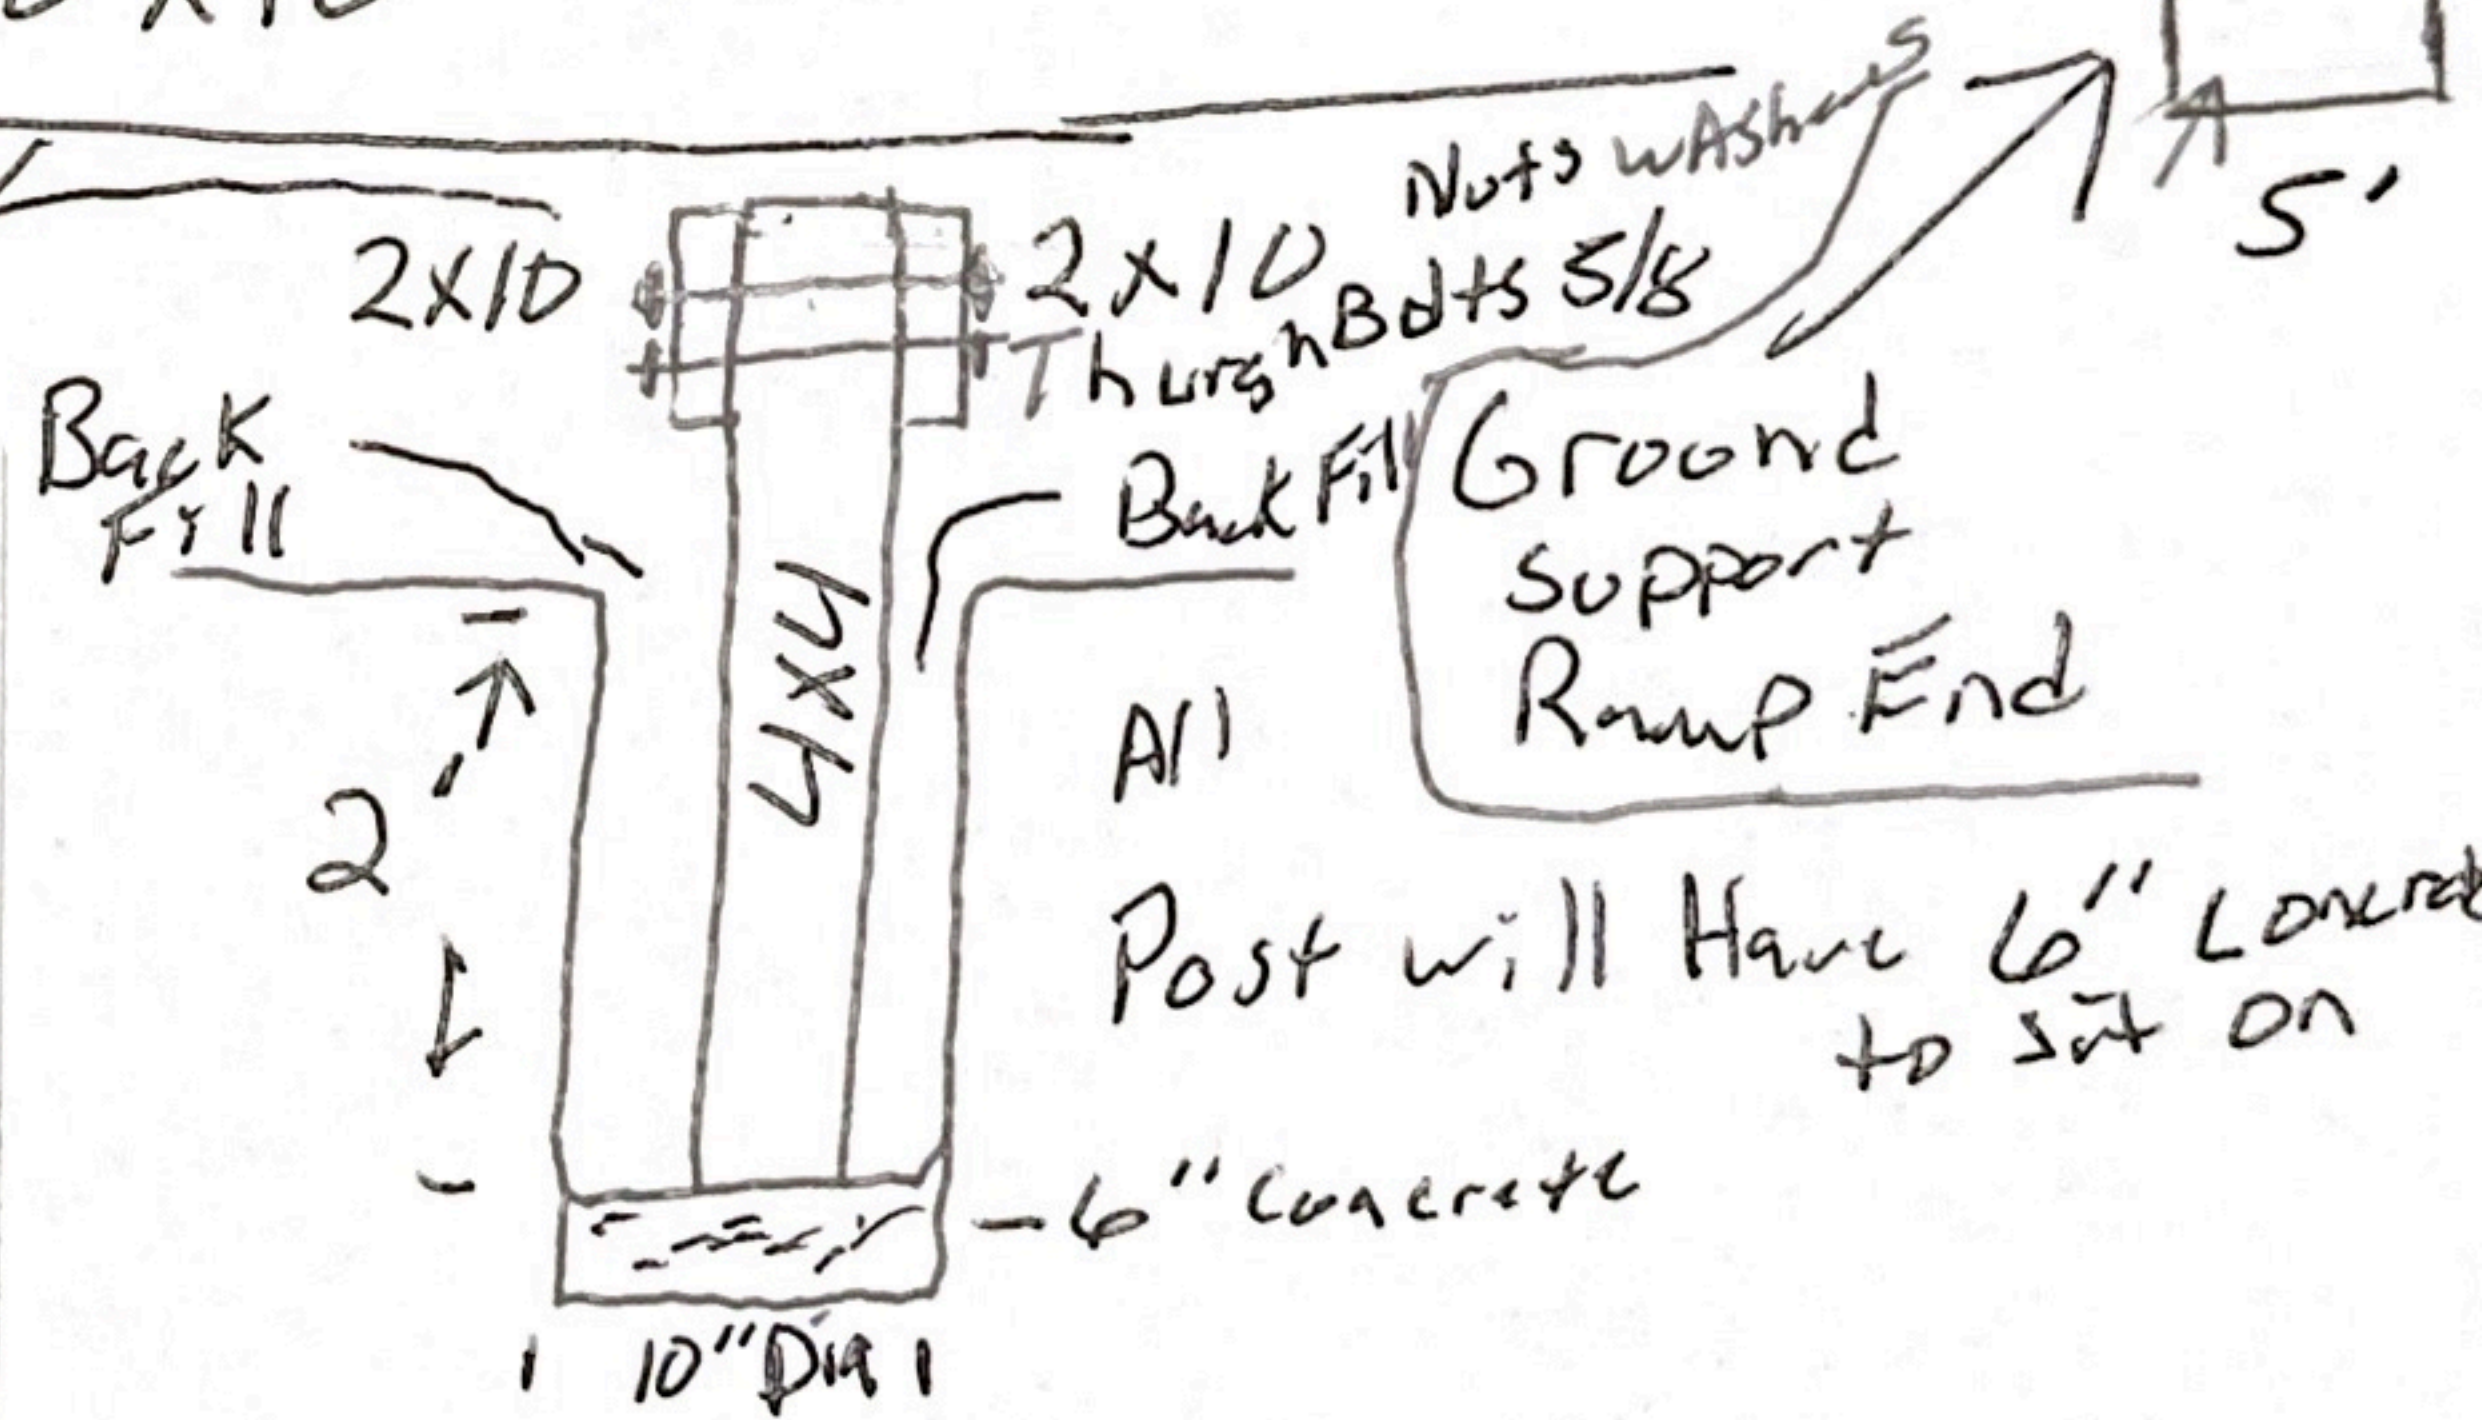 Nuts washers
5'
2x10
2x10
Thurgh Bolts 5/8
Back
Fill
Back Fill
Ground
Support
Ramp End
4x4
2'
All
Post will Have 6" Concret
to sit on
6" Concrete
10" Dia